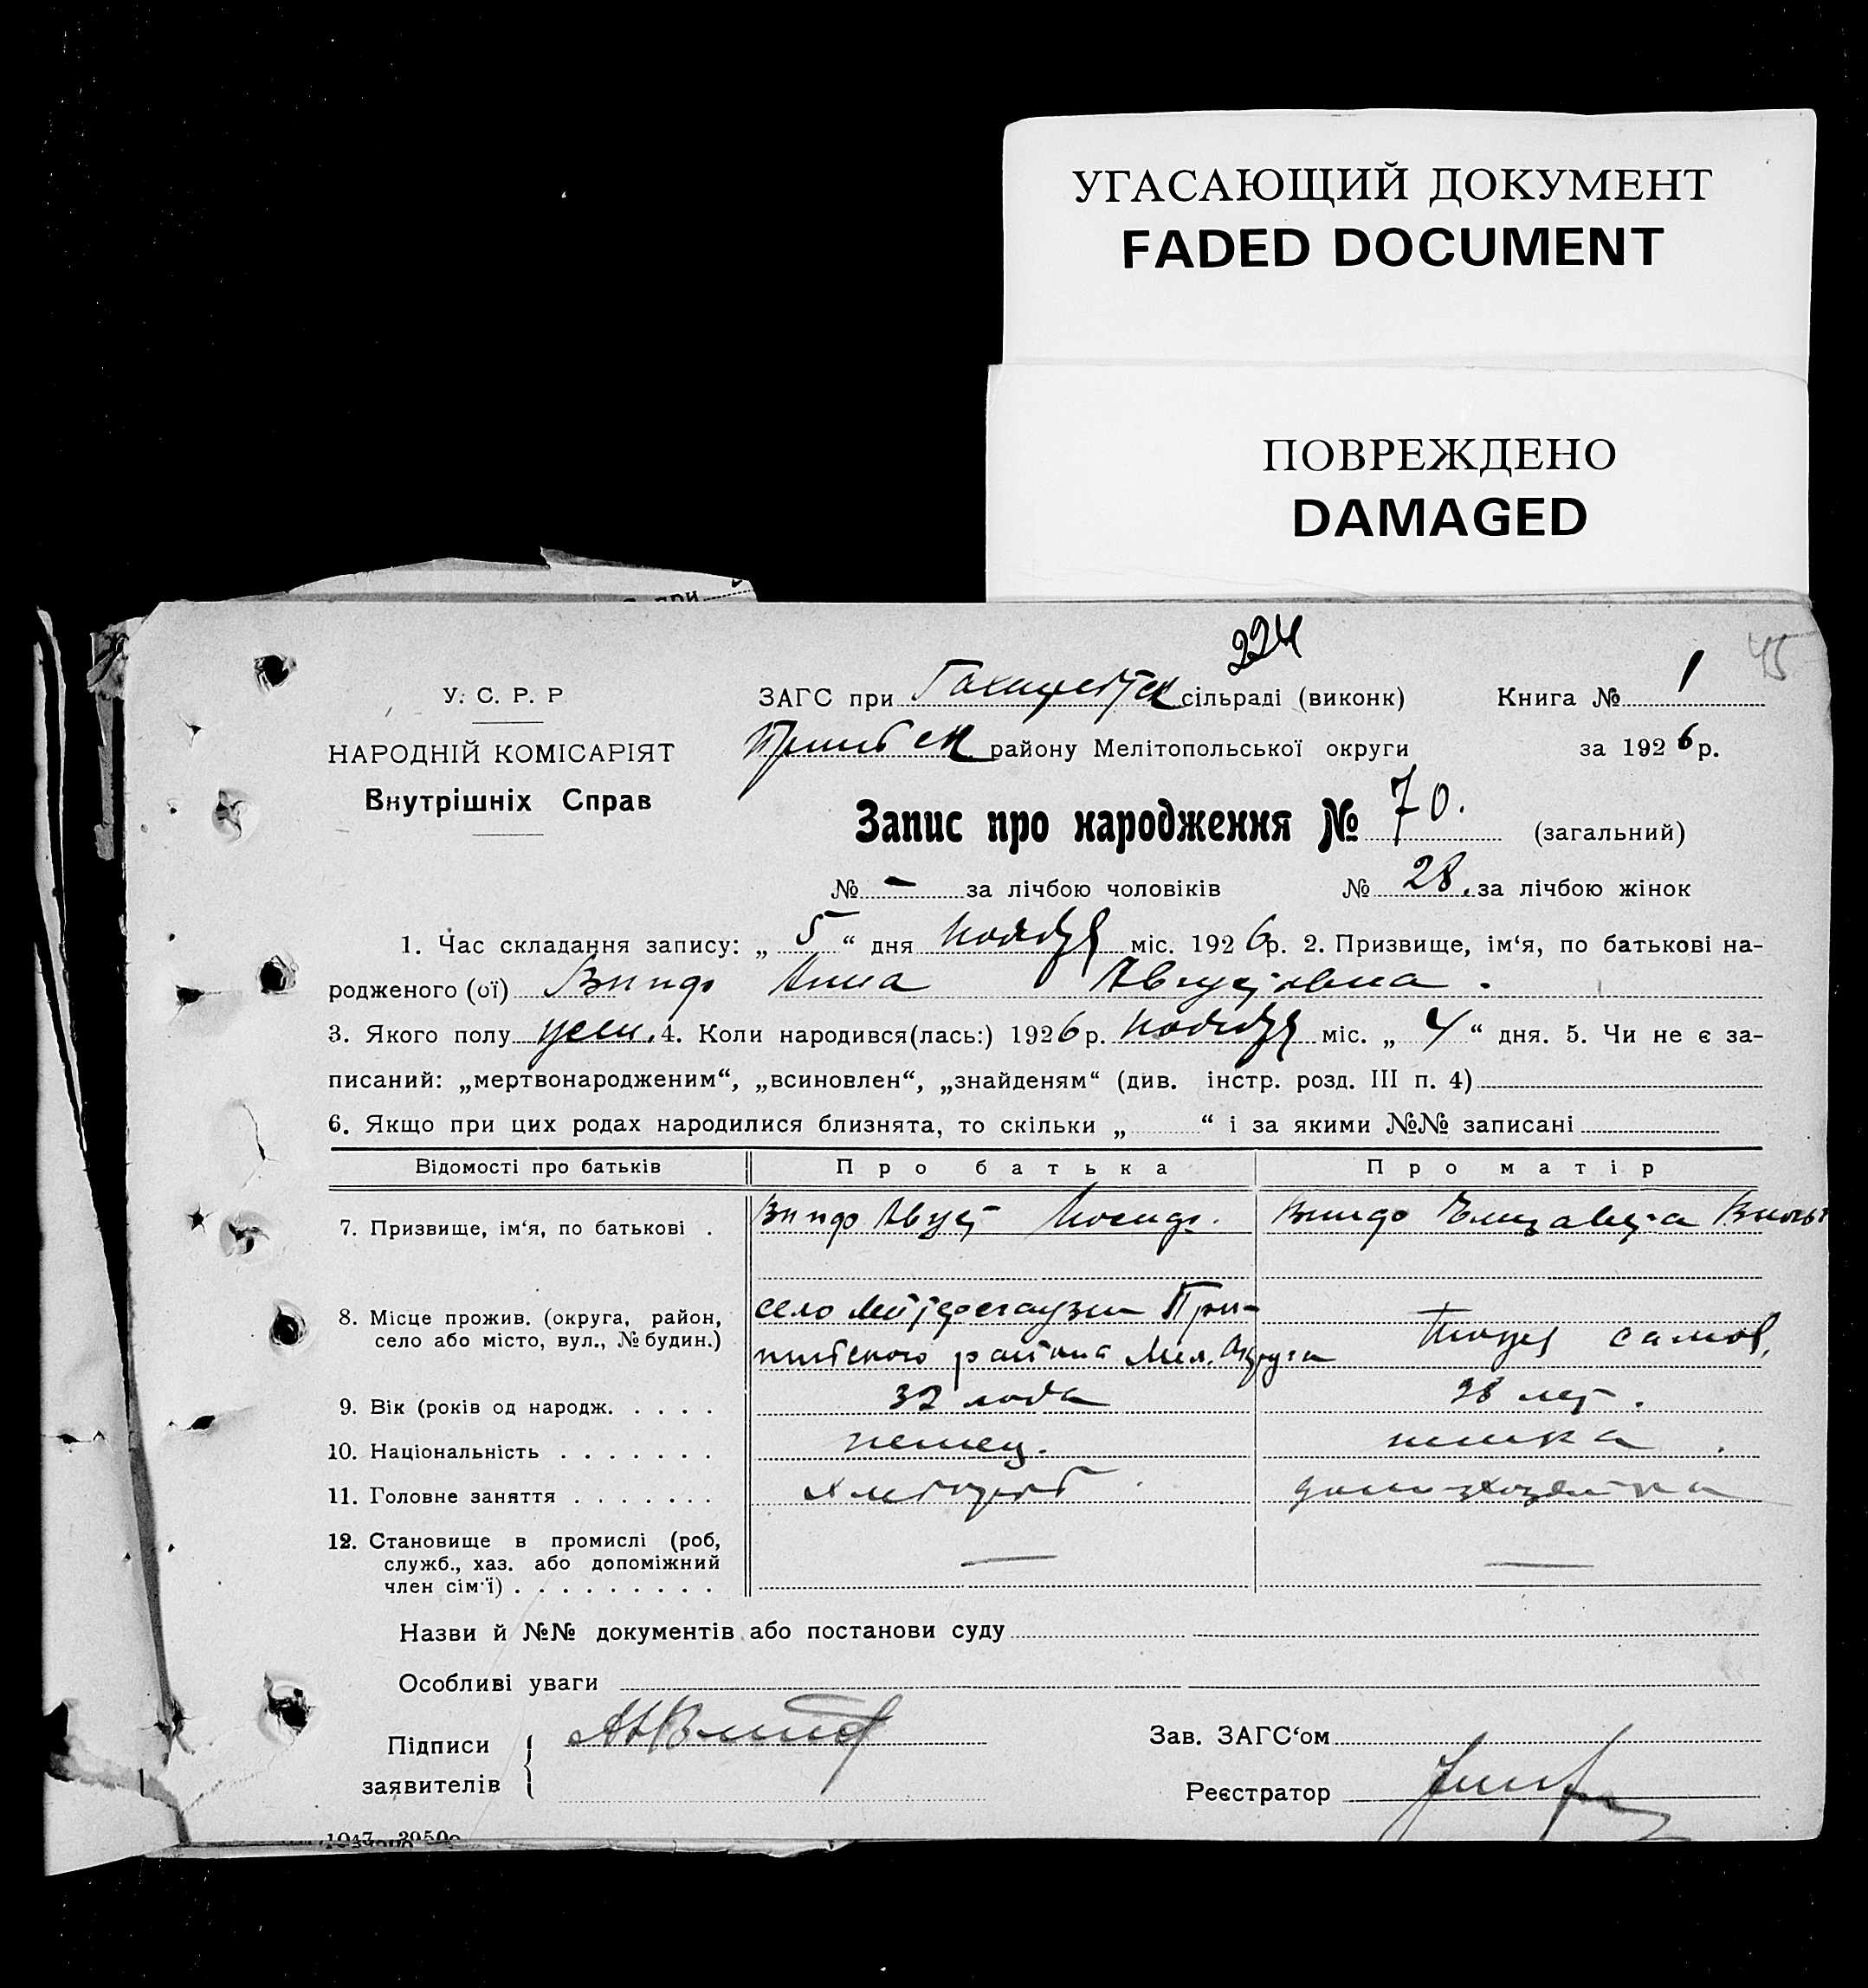 УГАСАЮЩИЙ ДОКУМЕНТ
FADED DOCUMENT
ПОВРЕЖДЕНО
DAMAGED
при
224
45
У. С. Р. Р
ЗАГС при сільраді (виконк) Книга № 1
НАРОДНІЙ КОМІСАРІЯТ
району Мелітопольської округи за 1926 р.
Внутрішніх Справ
Запис про народження № 70. (загальний)
№ - за лічбою чоловіків № 28. за лічбою жінок
1. Час складання запису: „ 5 “ дня ноября міс. 1926 р. 2. Призвище, ім‘я, по батькові на-
родженого (ої) Анна Августовна.
3. Якого полу жен. 4. Коли народився(лась:) 1926 р. ноября міс. „ 4 “ дня. 5. Чи не є за-
писаний: „мертвонародженим“, „всиновлен“, „знайденям“ (див. інстр. розд. III п. 4)
6. Якщо при цих родах народилися близнята, то скільки „ “ і за якими №№ записані
Відомості про батьків Про батька Про матір
7. Призвище, ім‘я, по батькові . Август Елизавета
8. Місце прожив. (округа, район, село или місто, вул., № будин.) село района Мел. Округа
9. Вік (років од народж. . . . . 32 года 28 лет.
10. Національність . . . . . . . немец. немка.
11. Головне заняття . . . . . . . хлебороб домохозяйка
12. Становище в промислі (роб,
служб., хаз. або допоміжний
член сім‘ї) . . . . . . . . . — —
Назви й №№ документів або постанови суду
Особливі уваги
Підписи
заявителів
Зав. ЗАГС‘ом
Реєстратор